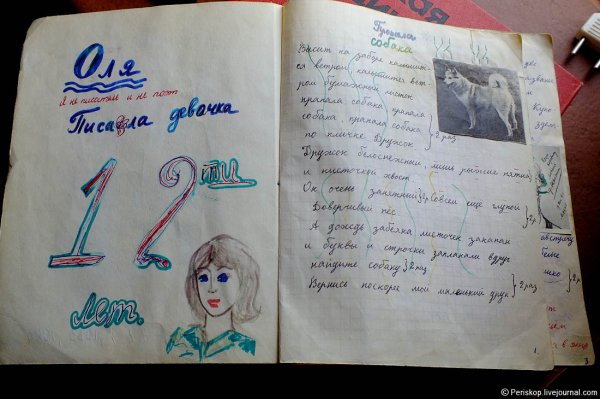 Оля
Я не писатель и не поэт
Писала девочка
12ти
лет.
Пропала
собака
Висит на заборе колышит-
ся ветром, колышится вет-
ром бумажный листок
пропала собака, пропала
собака, пропала собака } 2 раз
по кличке Дружок
Дружок белоснежный, лишь рыжие пятна
и кисточкой хвост
Он очень занятный}2р Совсем ещё глупой
Доверчивый пёс }2р
А дождь листочек закапал
и буквы и строчки заплакали вдруг
найдите собаку}2 раз
Вернись поскорее мой маленький друг }2 раз
1
3
© Periskop.livejournal.com